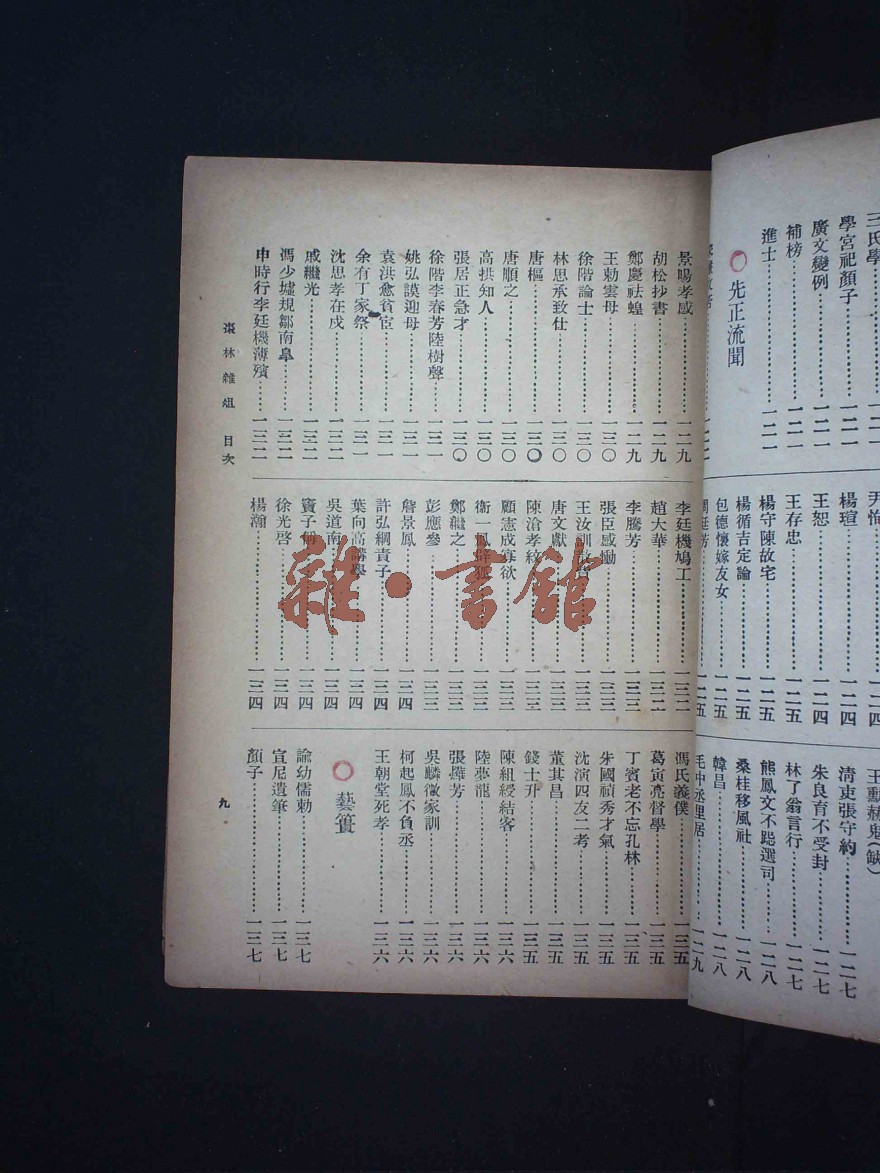 三氏學
學宮祀顏子……一二一
廣文變例……一二一
補榜……一二一
進士……一二一
先正流聞
尹
楊瑄……一二四
王恕……一二四
王存忠……一二五
楊守陳故宅……一二五
楊循吉定論……一二五
包德懷嫁友女……一二五
一二五
清吏張守約……一二七
朱良育不受封……一二七
林了翁言行……一二七
熊鳳文不跪選司……一二八
桑桂移風社……一二八
韓昌……一二八
毛中丞里居……一二九
景暘孝感……一二九
胡松抄書……一二九
鄭慶祛蝗……一二九
王勅雲母……一三〇
徐階論士……一三〇
林思承致仕……一三〇
唐樞……一三〇
唐順之……一三〇
高拱知人……一三〇
張居正急才……一三〇
徐階李春芳陸樹聲……一三一
姚弘謨迎母……一三一
袁洪愈貧宦……一三一
余有丁家祭……一三一
沈思孝在戍……一三二
戚繼光……一三二
馮少墟規鄒南臯……一三二
申時行李廷機薄殯……一三二
李廷機鳩工……一三二
趙大華……一三二
李騰芳……一三三
張臣感慟……一三三
王汝訓……一三三
唐文獻……一三三
陳滄孝紋……一三三
顧憲成寡欲……一三三
衞一鳳……狐……一三三
鄭繼之……一三三
彭應參……一三三
詹景鳳……一三四
許弘綱責子……一三四
葉向高講學……一三四
吳道南……一三四
竇子偁……一三四
徐光啓……一三四
楊瀚……一三四
馮氏義僕……一三五
葛寅亮督學……一三五
丁賓老不忘孔林……一三五
朱國禎秀才氣……一三五
沈演四友二考……一三五
董其昌……一三五
錢士升……一三五
陳組綬結客……一三六
陸夢龍……一三六
張燁芳……一三六
吳麟徵家訓……一三六
柯起鳳不負丞……一三六
王朝堂死孝……一三六
藝簣
諭幼儒勅……一三七
宣尼遺筆……一三七
顏子……一三七
棗林雜俎 目次
九
雜·書館